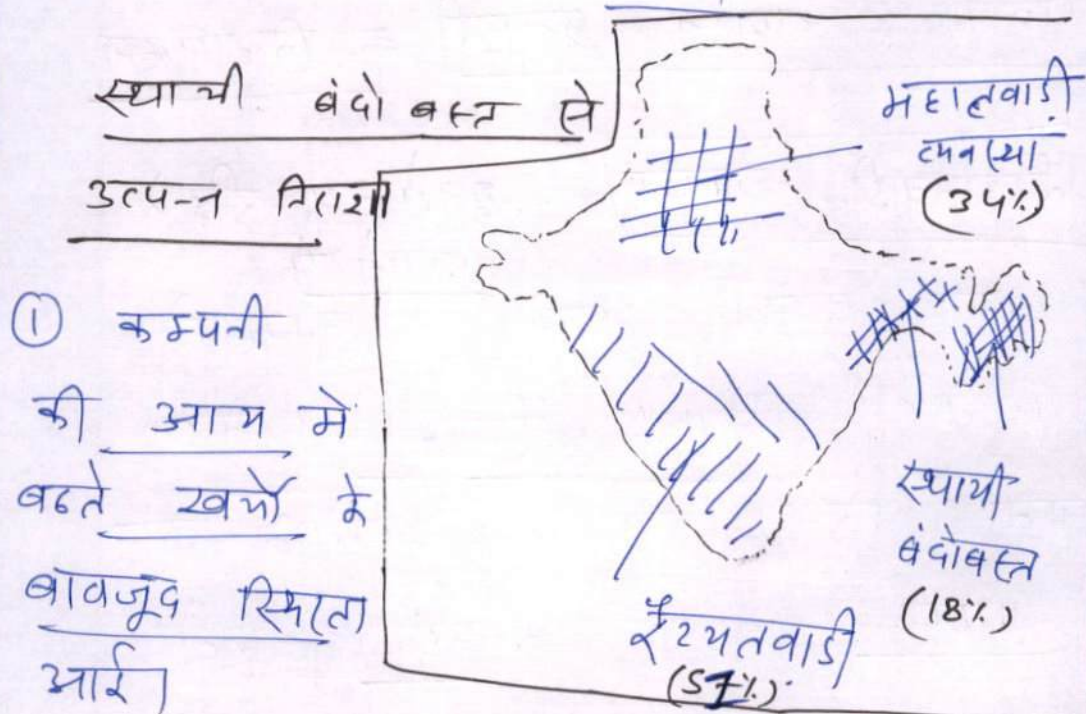 स्थायी बंदोबस्त से
उत्पन्न निराशा
① कम्पनी
की आय मे
बढते खर्चो के
बावजूद स्थिरता
आई।
महालवाडी
व्यवस्था
(34%)
स्थायी
बंदोबस्त
(18%)
रैय्यतवाडी
(57%)